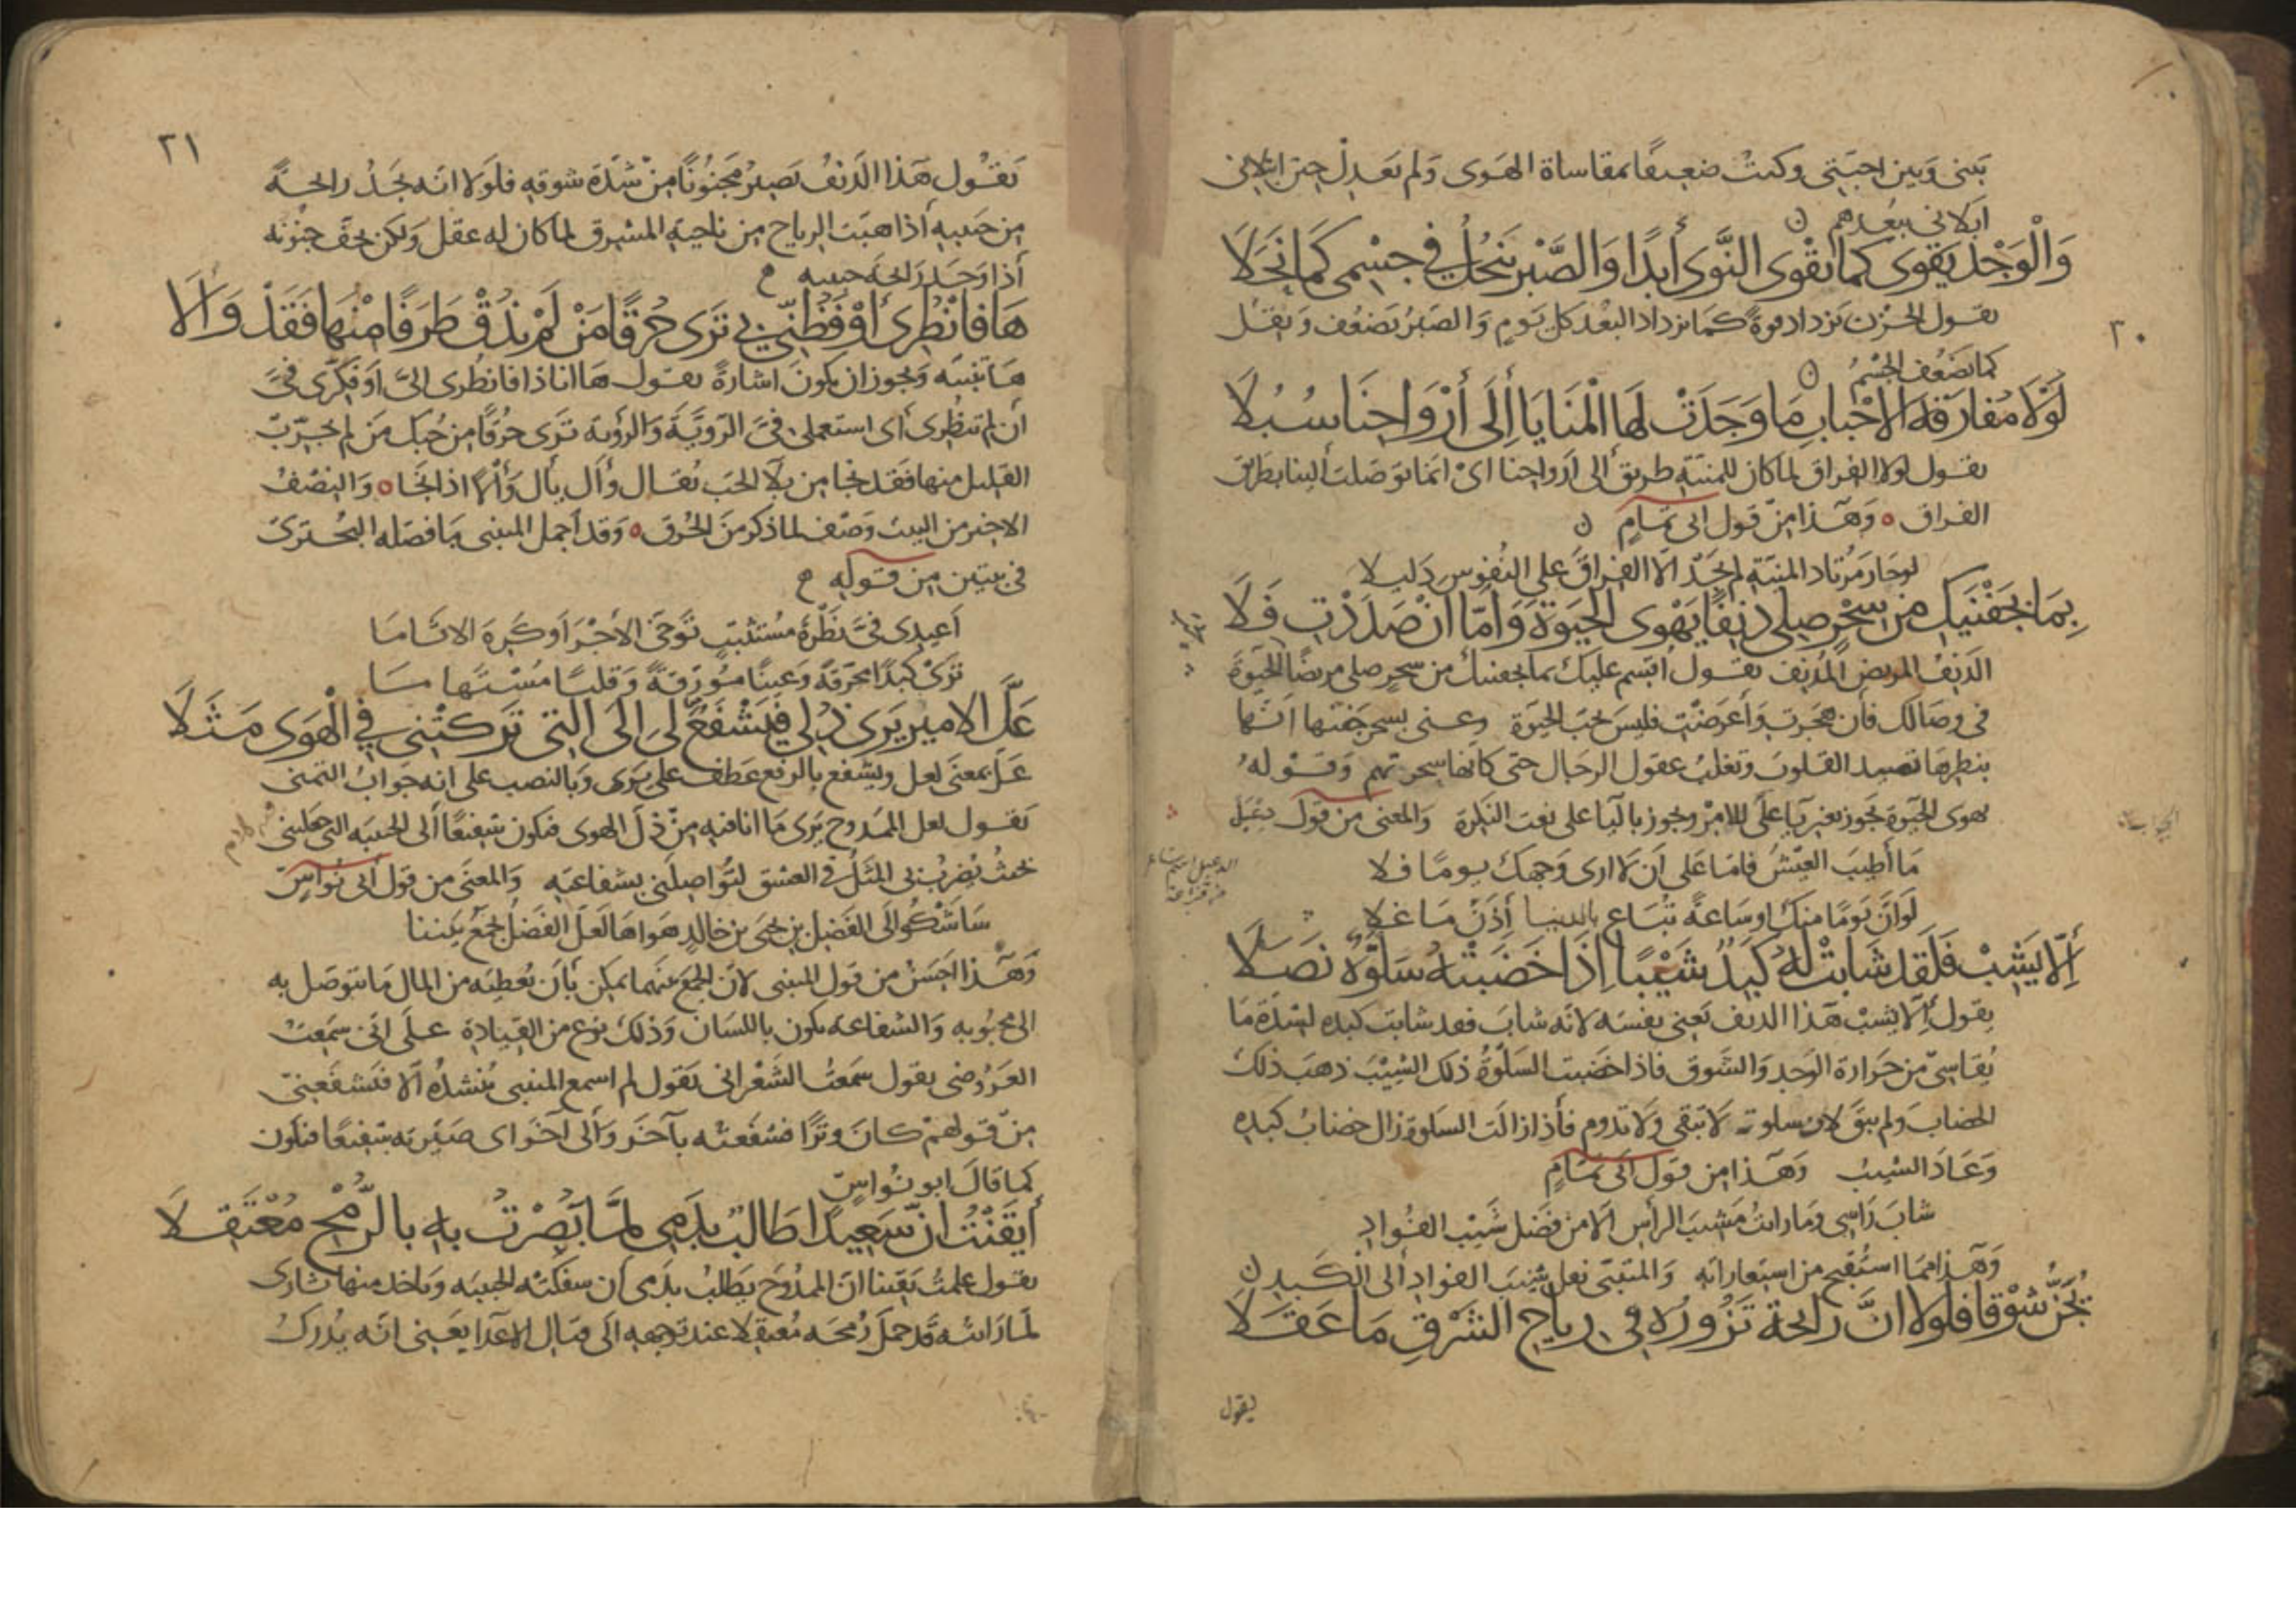 بيني وبين احبتي وكنت ضعيفا بمقاساة الهوى ولم يعدل حين ابتلاني
ابلاني ببعدهم
وَالْوَجْدُ يَقْوَى كما تَقْوَى النَّوَى أَبَدًا وَالصَّبْرُ يَنْحُلُ في جسْمِى كَمَا نَحَلَا
يقول الحزن يزداد قوة كما يزداد البعد كل يوم والصبر يضعف ويقل
٢٠
كما يضعف الجسم
لَوْلَا مُفارَقَةُ الاحْبابِ مَا وَجَدَتْ لَهَا الْمَنَايَا إِلَى أَرْوَاحِنَا سُبُلَا
يقول لولا الفراق لما كان للمنية طريق الى ارواحنا اى انما توصلت الينا بطريق
الفراق ٥ وهذا من قول ابى تمام
لو حار مُرتاد المنية لم يجد الا الفراق على النفوس دليلا
بِمَا بِجَفْنَيْكِ مِن سِحْرٍ صِلِى دَنِفًا يَهْوَى الحَيَوةَ وَأَمّا ان صَدَدْتِ فَلَا
الدنف المريض المدنف يقول اقسم عليك بما بجفنيك من سحر صلى مريضا يحب الحيوة
فى وصالك فأن هجرت وأعرضت فليس يحب الحيوة وعنى بسحر جفنها انها
بنظرها تصيد القلوب وتغلب عقول الرجال حتى كأنها سحرتهم وقوله
يهوى الحيوة يجوز بغير ياء على الامر ويجوز بالياء على نعت النكرة والمعنى من قول دعبل
مَا أطيبَ العيْشَ فاما على أن لا ارى وجهك يوما فلا
لو أنّ يوما منك او ساعة تباع بالدنيا إذن ما غلا
أِلّا يَشِبْ فَلَقد شَابَتْ لَهُ كَبِدٌ شَيْبًا اِذَا خَضَبَتْهُ سَلوَةٌ نَصَلَا
يقول الا يشب هذا الدنف يعنى نفسه لانه شاب فقد شابت كبده لشدة ما
يقاسى من حرارة الوجد والشوق فاذا خضبت السلوة ذلك الشيب ذهب ذلك
الخضاب ولم يبق لان سلوته لا تبقى ولا تدوم فأذا زالت السلوة زال خضاب كبده
وعاد الشيب وهذا من قول ابى تمام
شاب راسى وما رايت مشيب الرأس الا من فضل شيب الفؤاد
وهذا مما استقبح من استعاراته والمتنبى نقل شيب الفؤاد الى الكبد
يُجَنُّ شَوْقًا فلولا انَّ رائحة تَزُورُه فى رياح الشَرْقِ مَا عَقَلَا
يقول
٢١
يقول هذا الدنف يصير مجنونا من شدة شوقه فلولا انه يجد رائحة
من حبيبه أذا هبت الرياح من ناحية المشرق لما كان له عقل ولكن يخف جنونه
أذا وجد رائحة حبيبه
هَا فَانْظُرِى أَوْ فَظُنّى بِى تَرَى حُرَقًا مَنْ لَمْ يَذُقْ طَرَفًا مِنْهَا فَقَدْ وَأَلَا
ها تنبيه ويجوز ان يكون اشارة يقول ها انا ذا فانظرى الىّ او فكرى فىّ
أن لم تنظرى أى استعملى فىّ الروية والرؤية ترى حرقا من حبك من لم يجرب
القليل منها فقد نجا من بلاء الحب يقال وأل يأل وألا اذا نجا ٥ والنصف
الاخير من البيت وصف لما ذكر من الحرق ٥ وقد اجمل المتنبى ما فصله البحترى
فى بيتين من قوله
أعيدى فىّ نظرة مستثيب توخى الاجر او كره الاثاما
ترى كبدا محرقة وعينا مؤرقة وقلبا مستهاما
عَلَّ الامِيرَ يَرَى ذُلّى فَيَشْفَعَ لِى الَى الَّتِى تَرَكَتْنِى فِى الْهَوَى مَثَلَا
علّ بمعنى لعل ويشفع بالرفع عطف على يرى وبالنصب على انه جواب التمنى
يقول لعل الممدوح يرى ما انا فيه من ذل الهوى فيكون شفيعا الى الحبيبة التى جعلتنى
بحيث يضرب بى المثل فى العشق لتواصلنى بشفاعته والمعنى من قول ابى نواس
سَاشكو الى الفضل بن يحيى بن خالد هواها لعل الفضل يجمع بيننا
وهذا احسن من قول المتنبى لان الجمع بينهما يمكن بأن يعطيه من المال ما يتوصل به
الى محبوبه والشفاعة يكون باللسان وذلك نوع من القيادة على انى سمعت
العروضى يقول سمعت الشعرانى يقول لم اسمع المتنبى ينشده الا فتشفعنى
من قولهم كان وترا فشفعته بآخر وألى آخر اى صيرته شفيعا فيكون
كما قال ابو نواس
أَيْقَنْتُ انّ سَعِيدًا طَالِبٌ بِدَمِى لَمَّا بَصُرْتُ بِهِ بالرُّمْحِ مُعْتَقِلَا
يقول علمت يقينا ان الممدوح يطلب بدمى ان سفكته الحبيبة وياخذ منها ثارى
لما رأيته قد حمل رمحه معتقلا عند توجهه الى قتال الاعداء يعنى انه يدرك